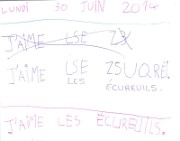 LUNDI 30 JUIN 2014
J'AIME LSE Z3
J'AIME LSE ZSUQ.RÉ.
LES ÉCUREUILS.
J'AIME LES ÉCUREUILS.